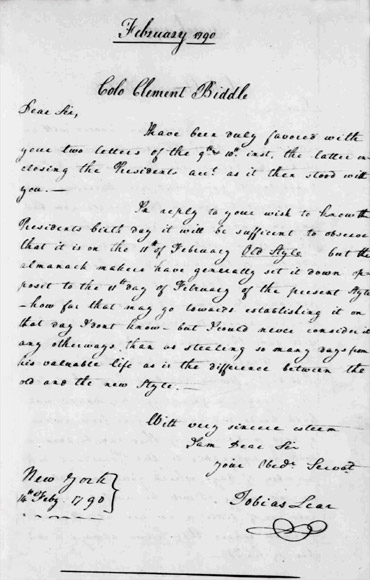 February 1790
Colo Clement Biddle
Dear Sir,
I have been duly favored with
your two letters of the 9th & 10th inst, the latter en
closing the Presidents acct as it then stood with
you.—
In reply to your wish to know the
Presidents birth day it will be sufficient to observe
that it is on the 11th of February Old Style but the
almanack makers have generally set it down op-
posit to the 11th day of February of the present Style
- how far that may go towards establishing it on
that day I dont know - but I could never consider it
any otherways than as stealing so many days from
his valuable life as is the difference between the
old and the new Style.—
With very sincere esteem
I am Dear Sir
your Obedt Servat
Tobias Lear
New York
14th Feby 1790